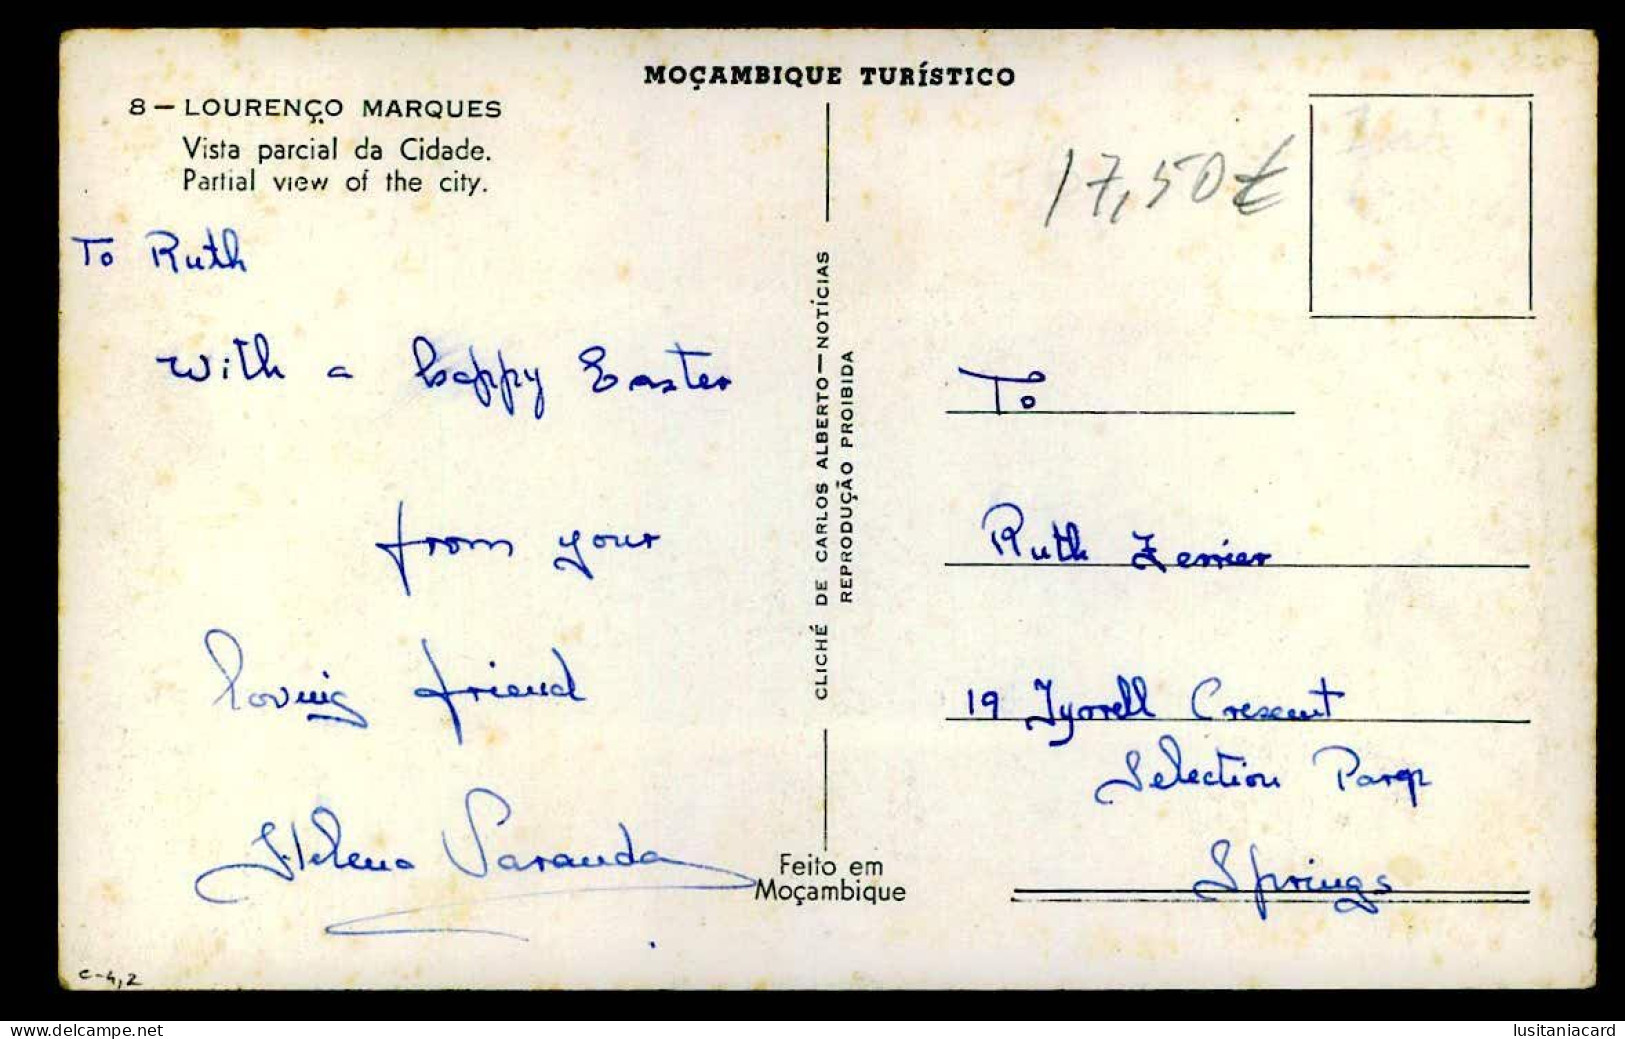 MOÇAMBIQUE TURÍSTICO
8 — LOURENÇO MARQUES
Vista parcial da Cidade.
Partial view of the city.
To Ruth
With a happy Easter
from your
loving friend
Helena Saranda
C-4,2
CLICHÉ DE CARLOS ALBERTO—NOTÍCIAS
REPRODUÇÃO PROIBIDA
Feito em
Moçambique
17,50€
To
Ruth
19 Tyrrell Crescent
Selection Park
Springs
www.delcampe.net
lusitaniacard